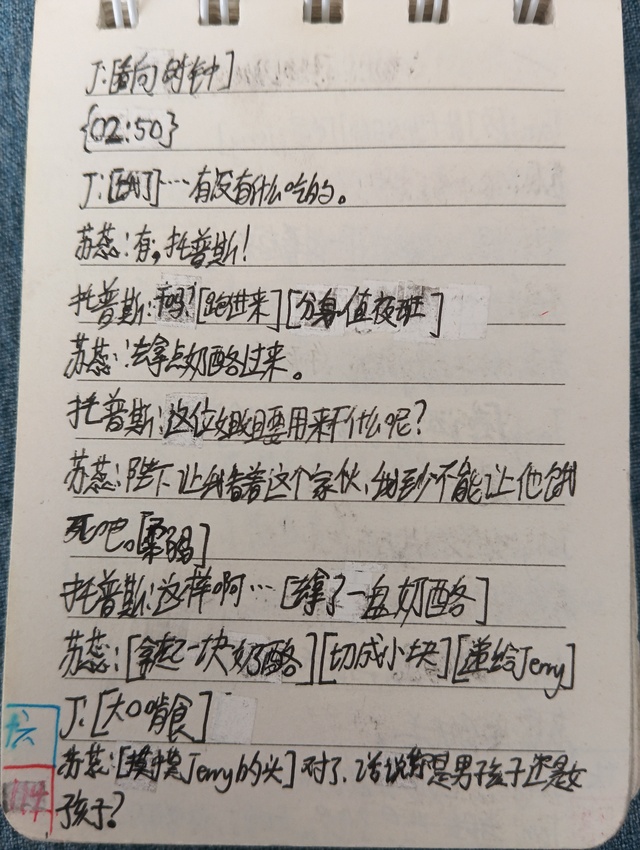 J:[看向时钟]
{02:50}
J:[饿了]…有没有什么吃的。
苏蕊:有,托普斯!
托普斯:吗?[跑进来][分身值夜班]
苏蕊:去拿点奶酪过来。
托普斯:这位姐姐要用来干什么呢?
苏蕊:陛下让我看着这个家伙,我至少不能让他饿
死吧。[柔弱]
托普斯:这样啊…[拿了一盘奶酪]
苏蕊:[拿起一块奶酪][切成小块][递给Jerry]
J:[大口啃食]
苏蕊:[摸摸Jerry的头]对了、话说你是男孩子还是女
孩子?
六
114